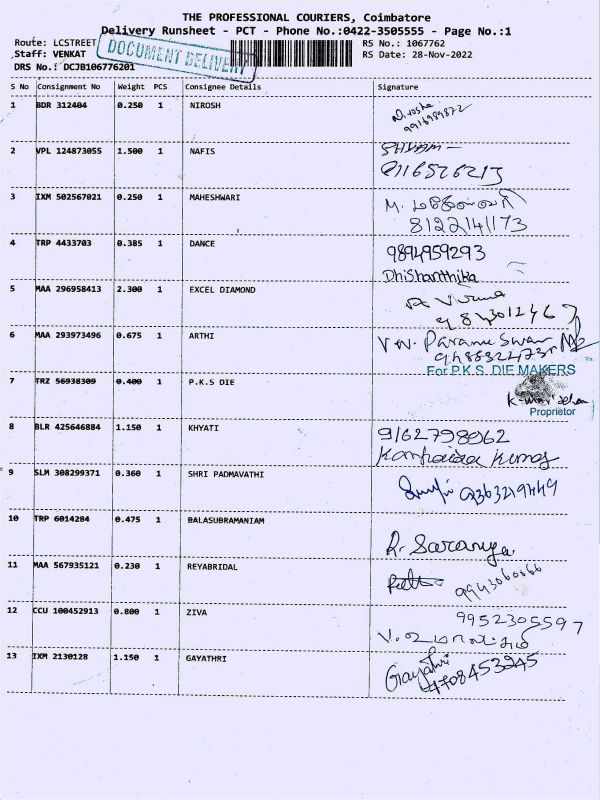 THE PROFESSIONAL COURIERS, Coimbatore
Delivery Runsheet - PCT - Phone No.:0422-3505555 - Page No.:1
Route: LCSTREET
RS No.: 1067762
Staff: VENKAT
RS Date: 28-Nov-2022
DOCUMENT DELIVERY
DRS No.: DCJB106776201
S No Consignment No Weight PCS Consignee Details Signature
1 BDR 312404 0.250 1 NIROSH Nirosha
9916989872
2 VPL 124873055 1.500 1 NAFIS
9116526213
3 IXM 502567021 0.250 1 MAHESHWARI M. மகேஸ்வரி
8122141173
4 TRP 4433703 0.385 1 DANCE 9894959293
Dhishanthika
5 MAA 296958413 2.300 1 EXCEL DIAMOND
6 MAA 293973496 0.675 1 ARTHI
For P.K.S. DIE MAKERS
7 TRZ 56938309 0.400 1 P.K.S DIE
Proprietor
8 BLR 425646884 1.150 1 KHYATI 9162798962
Kumar
9 SLM 308299371 0.360 1 SHRI PADMAVATHI
10 TRP 6014284 0.475 1 BALASUBRAMANIAM
R. Saranya
11 MAA 567935121 0.230 1 REYABRIDAL 9943060666
12 CCU 100452913 0.800 1 ZIVA 9952305597
13 IXM 2130128 1.150 1 GAYATHRI Gayathri
4708453245